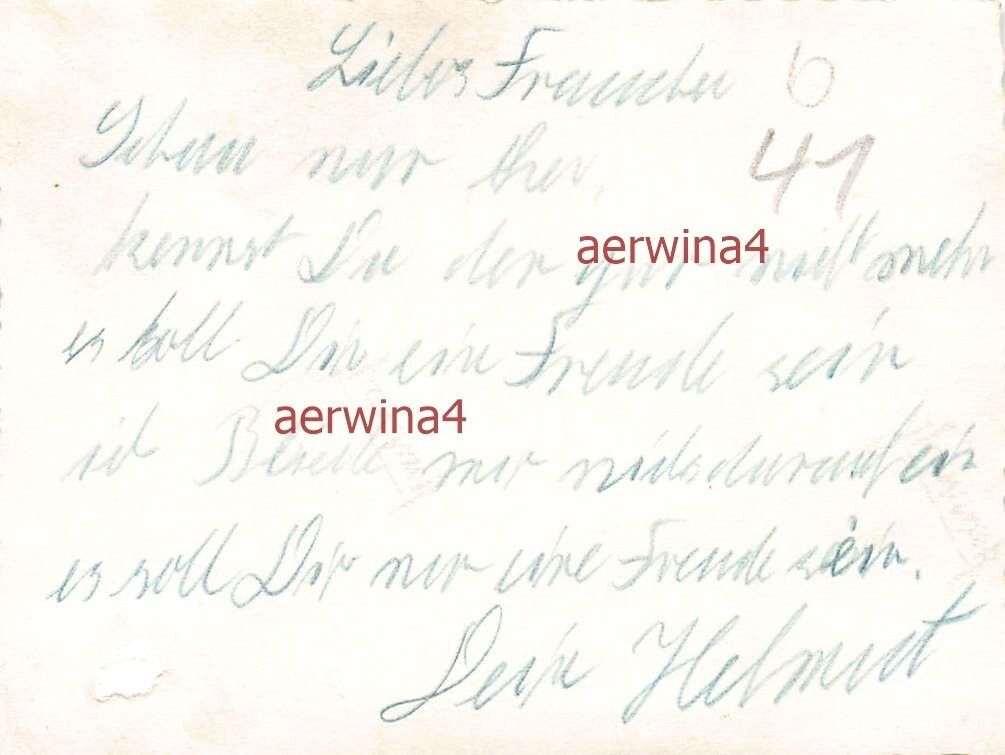 Liebes Frauchen
6
Schau nur her,
41
kennst Du den gar nicht mehr
aerwina4
es soll Dir eine Freude sein
aerwina4
nur nichts darauf ein
es soll Dir nur eine Freude sein.
Dein Helmut